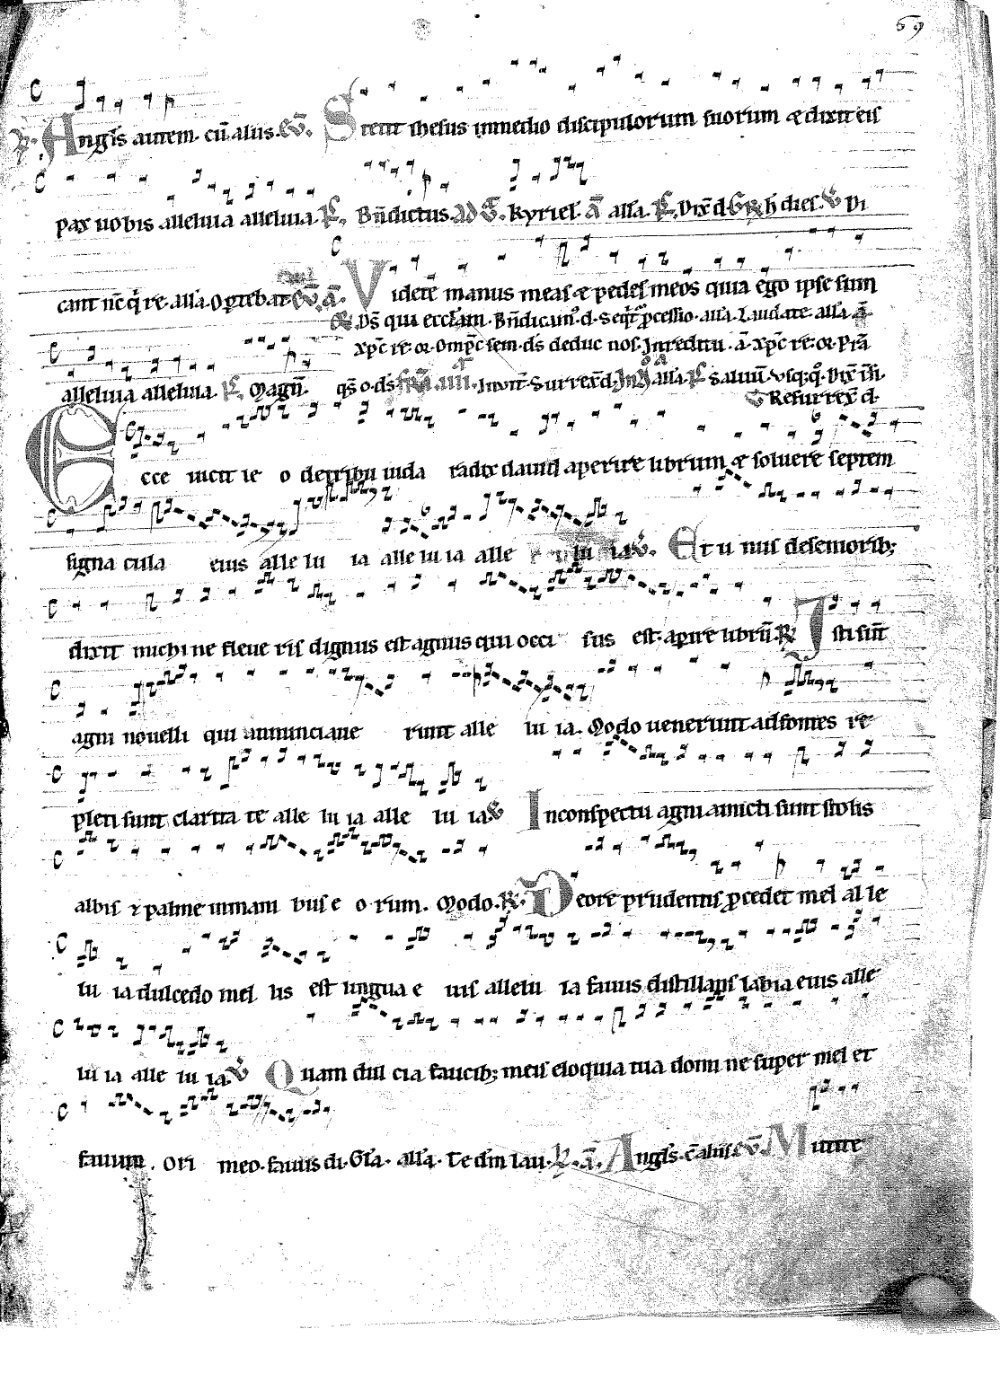 69
Angľs autem. cū aliis. Stetit ihesus in medio discipulorum suorum & dixit eis
pax uobis alleluia alleluia. Bn̄dictus. kyriel. aƚƚa. di
cant nc̄ q̄ re. aƚƚa. Oportebat. Videte manus meas & pedes meos quia ego ipse sum
Ds̄ qui ecclam. Bn̄dicam9. d. processio. aƚƚa. Laudate. aƚƚa.
xp̄c re. or. Omp̄c sem. ds̄ deduc nos. In reditu. a. xp̄c re. or.
alleluia alleluia. Magn̄. qs̄ o. ds̄ Inuit. Surrex. d. aƚƚa.
Resurrex. d.
Ecce uicit le o de tribu iuda radix dauid aperire librum & soluere septem
signa cula eius alle lu ia alle lu ia alle lu ia. Et u nus de senioribꝫ
dixit michi ne fleue ris dignus est agnus qui occi sus est. apire librū. Isti sūt
agni nouelli qui annunciaue runt alle lu ia. Modo uenerunt ad fontes re
pleti sunt clarita te alle lu ia alle lu ia In conspectu agni amicti sunt stolis
albis & palme in mani bus e o rum. Modo. De ore prudentis pcedet mel al le
lu ia dulcedo mel lis est lingua e ius allelu ia fauus distillans labia eius alle
lu ia alle lu ia. Quam dul cia faucibꝫ meis eloquia tua domi ne super mel et
fauum. ori meo. fauus di. Gƚa. aƚƚa. Te dm̄ lau. Angľs. Mitte